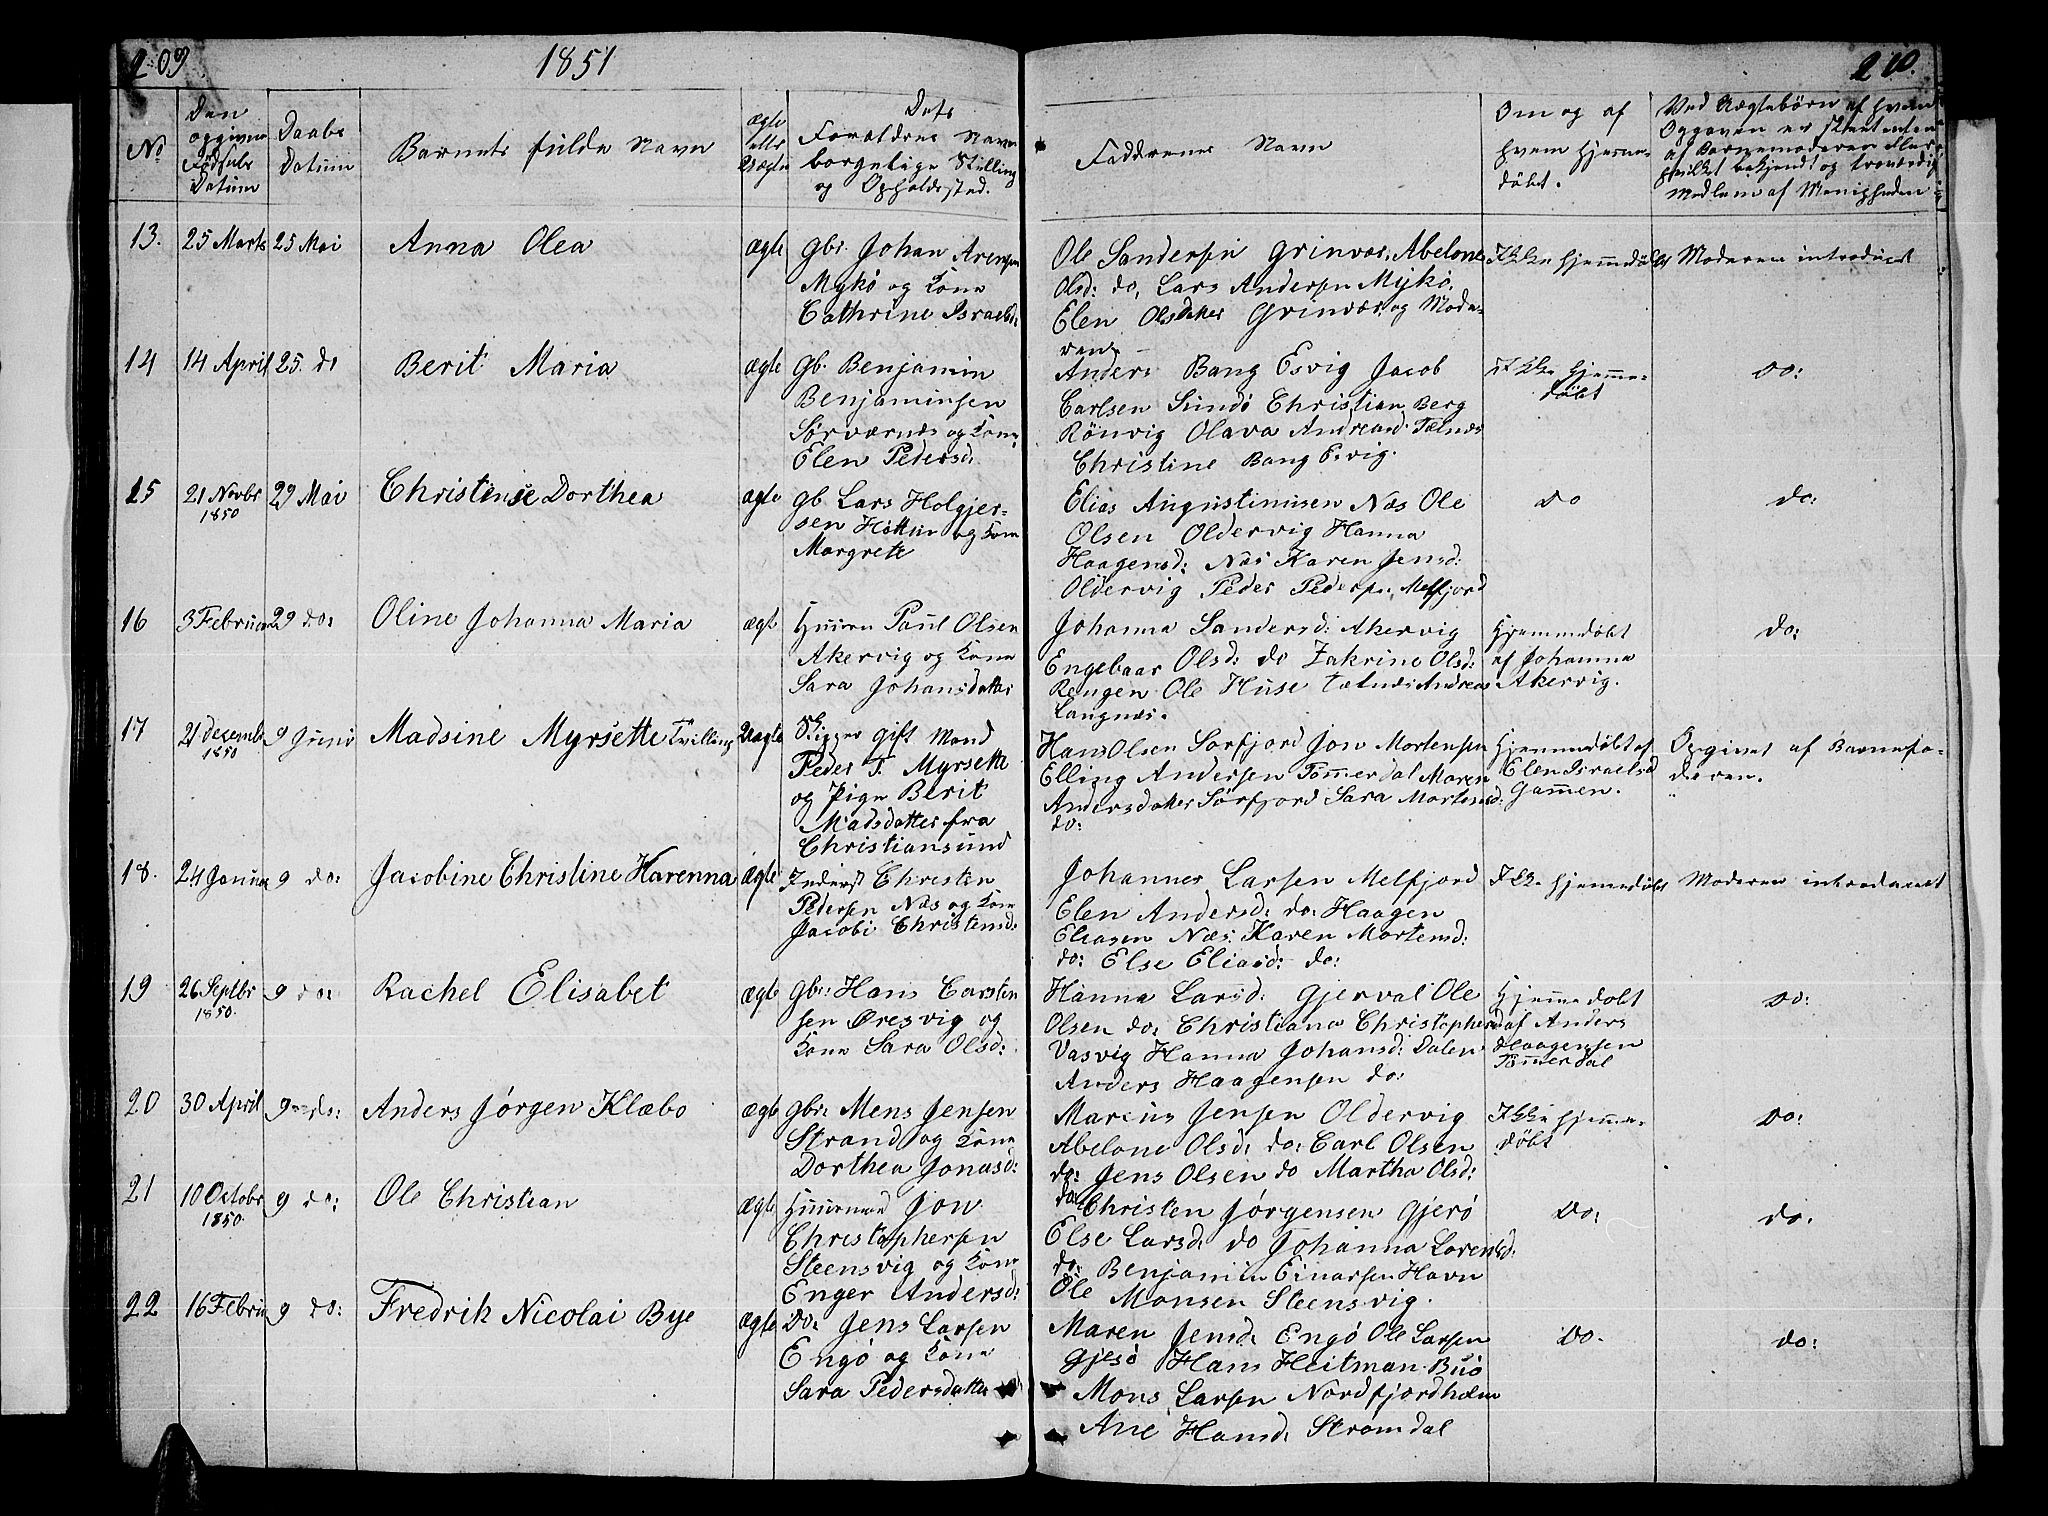 209
1851
No
Den opgivne Fødsels Datum
Daabs Datum
Barnets fulde Navn
ægte eller Uægte
Dets Forældres Navn borgelige Stilling og Opholdssted.
13. 25 Marts 25 Mai Anna Olea ægte gbr. Johan Arentsen
Mykö og Kone
Cathrine Israelsd:
14 14 April 25. do Berit Maria ægte gb. Benjamin
Benjaminsen
Sörværnæs og Kone
Elen Pedersd:
15 21 Novbr 1850 29 Mai Christense Dorthea ægte gb. Lars Holgjer-
sen og Kone
Margrete
16 3 Februar 29 do: Oline Johanna Maria ægte Huusm Paul Olsen
Akervig og Kone
Sara Johansdatter
17 21 decembr 1850 9 Juni Madsine Myrsette Tvilling Uægte Skipper gift Mand
Peder T. Myrsette
og Pige Berit
Madsdatter fra
Christiansund
18. 24 Januar 9 do: Jacobine Christine Harenna ægte Inderst Christen
Pedersen Næs og Kone
Jacobi Christensd:
19 26 Septbr 1850. 9 do: Rachel Elisabet ægte gbr: Hans Carsten
sen Øresvig og
Kone Sara Olsd:
20 30 April 9 do: Anders Jørgen Klæbo ægte gbr: Mens Jensen
Strand og Kone
Dorthea Jonasd:
21 10 Octobr 1850. 9 do: Ole Christian ægte Huusmand Jon
Christophersen
Steensvig og Kone
Enger Andersd:
22 16 Februar 9 do: Fredrik Nicolai Bye ægte Do: Jens Larsen
Engö og Kone
Sara Pedersdatter
210.
Faddrenes Navn
Om og af hvem hjemme-
döbt.
Ved Uægtebörn af hvem
Opgaven er skeet enten
af Barnemoderen eller
hvilket bekjendt og troværdig
Medlem af Menigheden
Ole Sandersen Grinvær, Abelone Ikke hjemmedöbt Moderen introduceret
Olsd: do, Lars Andersen Mykö,
Elen Olsdatter Grinvær, og Mode-
ren.
Anders Bang Esvig Jacob Ikke hjemme- do:
Carlsen Sundö Christian Berg döbt
Rönvig Olava Andreasd: Tælnæs
Christine Bang Esvig.
Elias Augustinusen Næs Ole do do:
Olsen Oldervig Hanna
Haagensd: Næs Karen Jensd:
Oldervig Peder Pedersen Melfjord
Johanna Sandersd: Akervig Hjemmedöbt do:
Engebaar Olsd: do Zakrine Olsd: af Johanna
Rengen Ole Huse Tælnæs Andreas Akervig.
Langnæs.
Hans Olsen Sörfjord Jon Mortensen Hjemmedöbt af Opgivet af Barnefa-
Elling Andersen Tömmerdal Maren Elen Israelsd deren.
Andersdatter Sörfjord Sara Mortensd: Gammen.
do:
Johannes Larsen Melfjord Ikke hjemmedöbt Moderen introduceret
Elen Andersd: do: Haagen
Eliasen Næs: Karen Mortensd:
do: Else Eliasd: do:
Hanna Larsd: Gjerval Ole Hjemmedöbt do:
Olsen do: Christiana Christophersd af Anders
Vasvig Hanna Johansd: Dalen Haagensen
Anders Haagensen do: Tömmerdal
Marcus Jensen Oldervig Ikke hjemme- do:
Abelone Olsd: do: Carl Olsen döbt
do: Jens Olsen do Martha Olsd:
do Christen Jørgensen Gjerö do: do.
Else Larsd: do Johanna Lorentsd:
do: Benjamin Einarsen Havn
Ole Monsen Steensvig.
Maren Jensd: Engö Ole Larsen do. do:
Gjesö Hans Heitman Buö
Mons Larsen Nordfjordholm
Ane Hansd: Strømdal